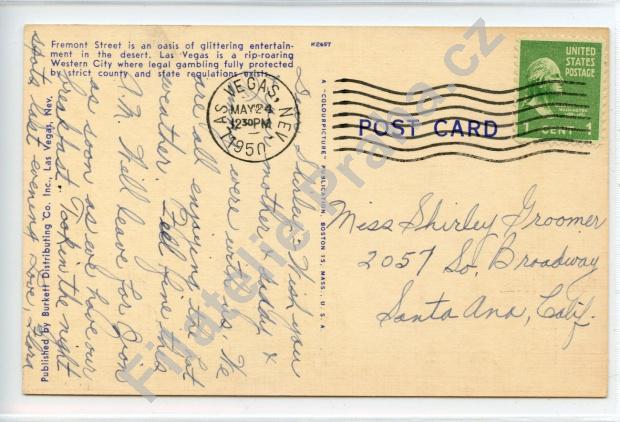 Fremont Street is an oasis of glittering entertain-
ment in the desert. Las Vegas is a rip-roaring
Western City where legal gambling fully protected
by strict county and state regulations exists.
K2657
LAS VEGAS, NEV.
MAY 24
12 30 PM
1950
UNITED
STATES
POSTAGE
1 CENT 1
POST CARD
Miss Shirley Groomer
2057 So. Broadway
Santa Ana, Calif.
Wish you
mother, daddy &
were with us. We
are all enjoying the hot
weather. Feel fine this
A.M. Will leave for Zion
as soon as we have our
breakfast. Took in the night
spots last evening Love,
Published by Burkett Distributing Co. Inc., Las Vegas, Nev.
A "COLOURPICTURE" PUBLICATION, BOSTON 15, MASS., U.S.A.
Filatelie Praha.cz